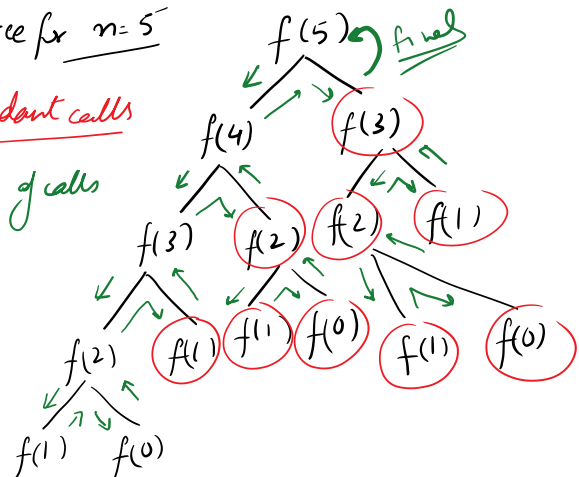 for n=5
calls
of calls
f(5)
final
f(4)
f(3)
f(3)
f(2)
f(2)
f(1)
f(2)
f(1)
f(1)
f(0)
f(1)
f(0)
f(1)
f(0)